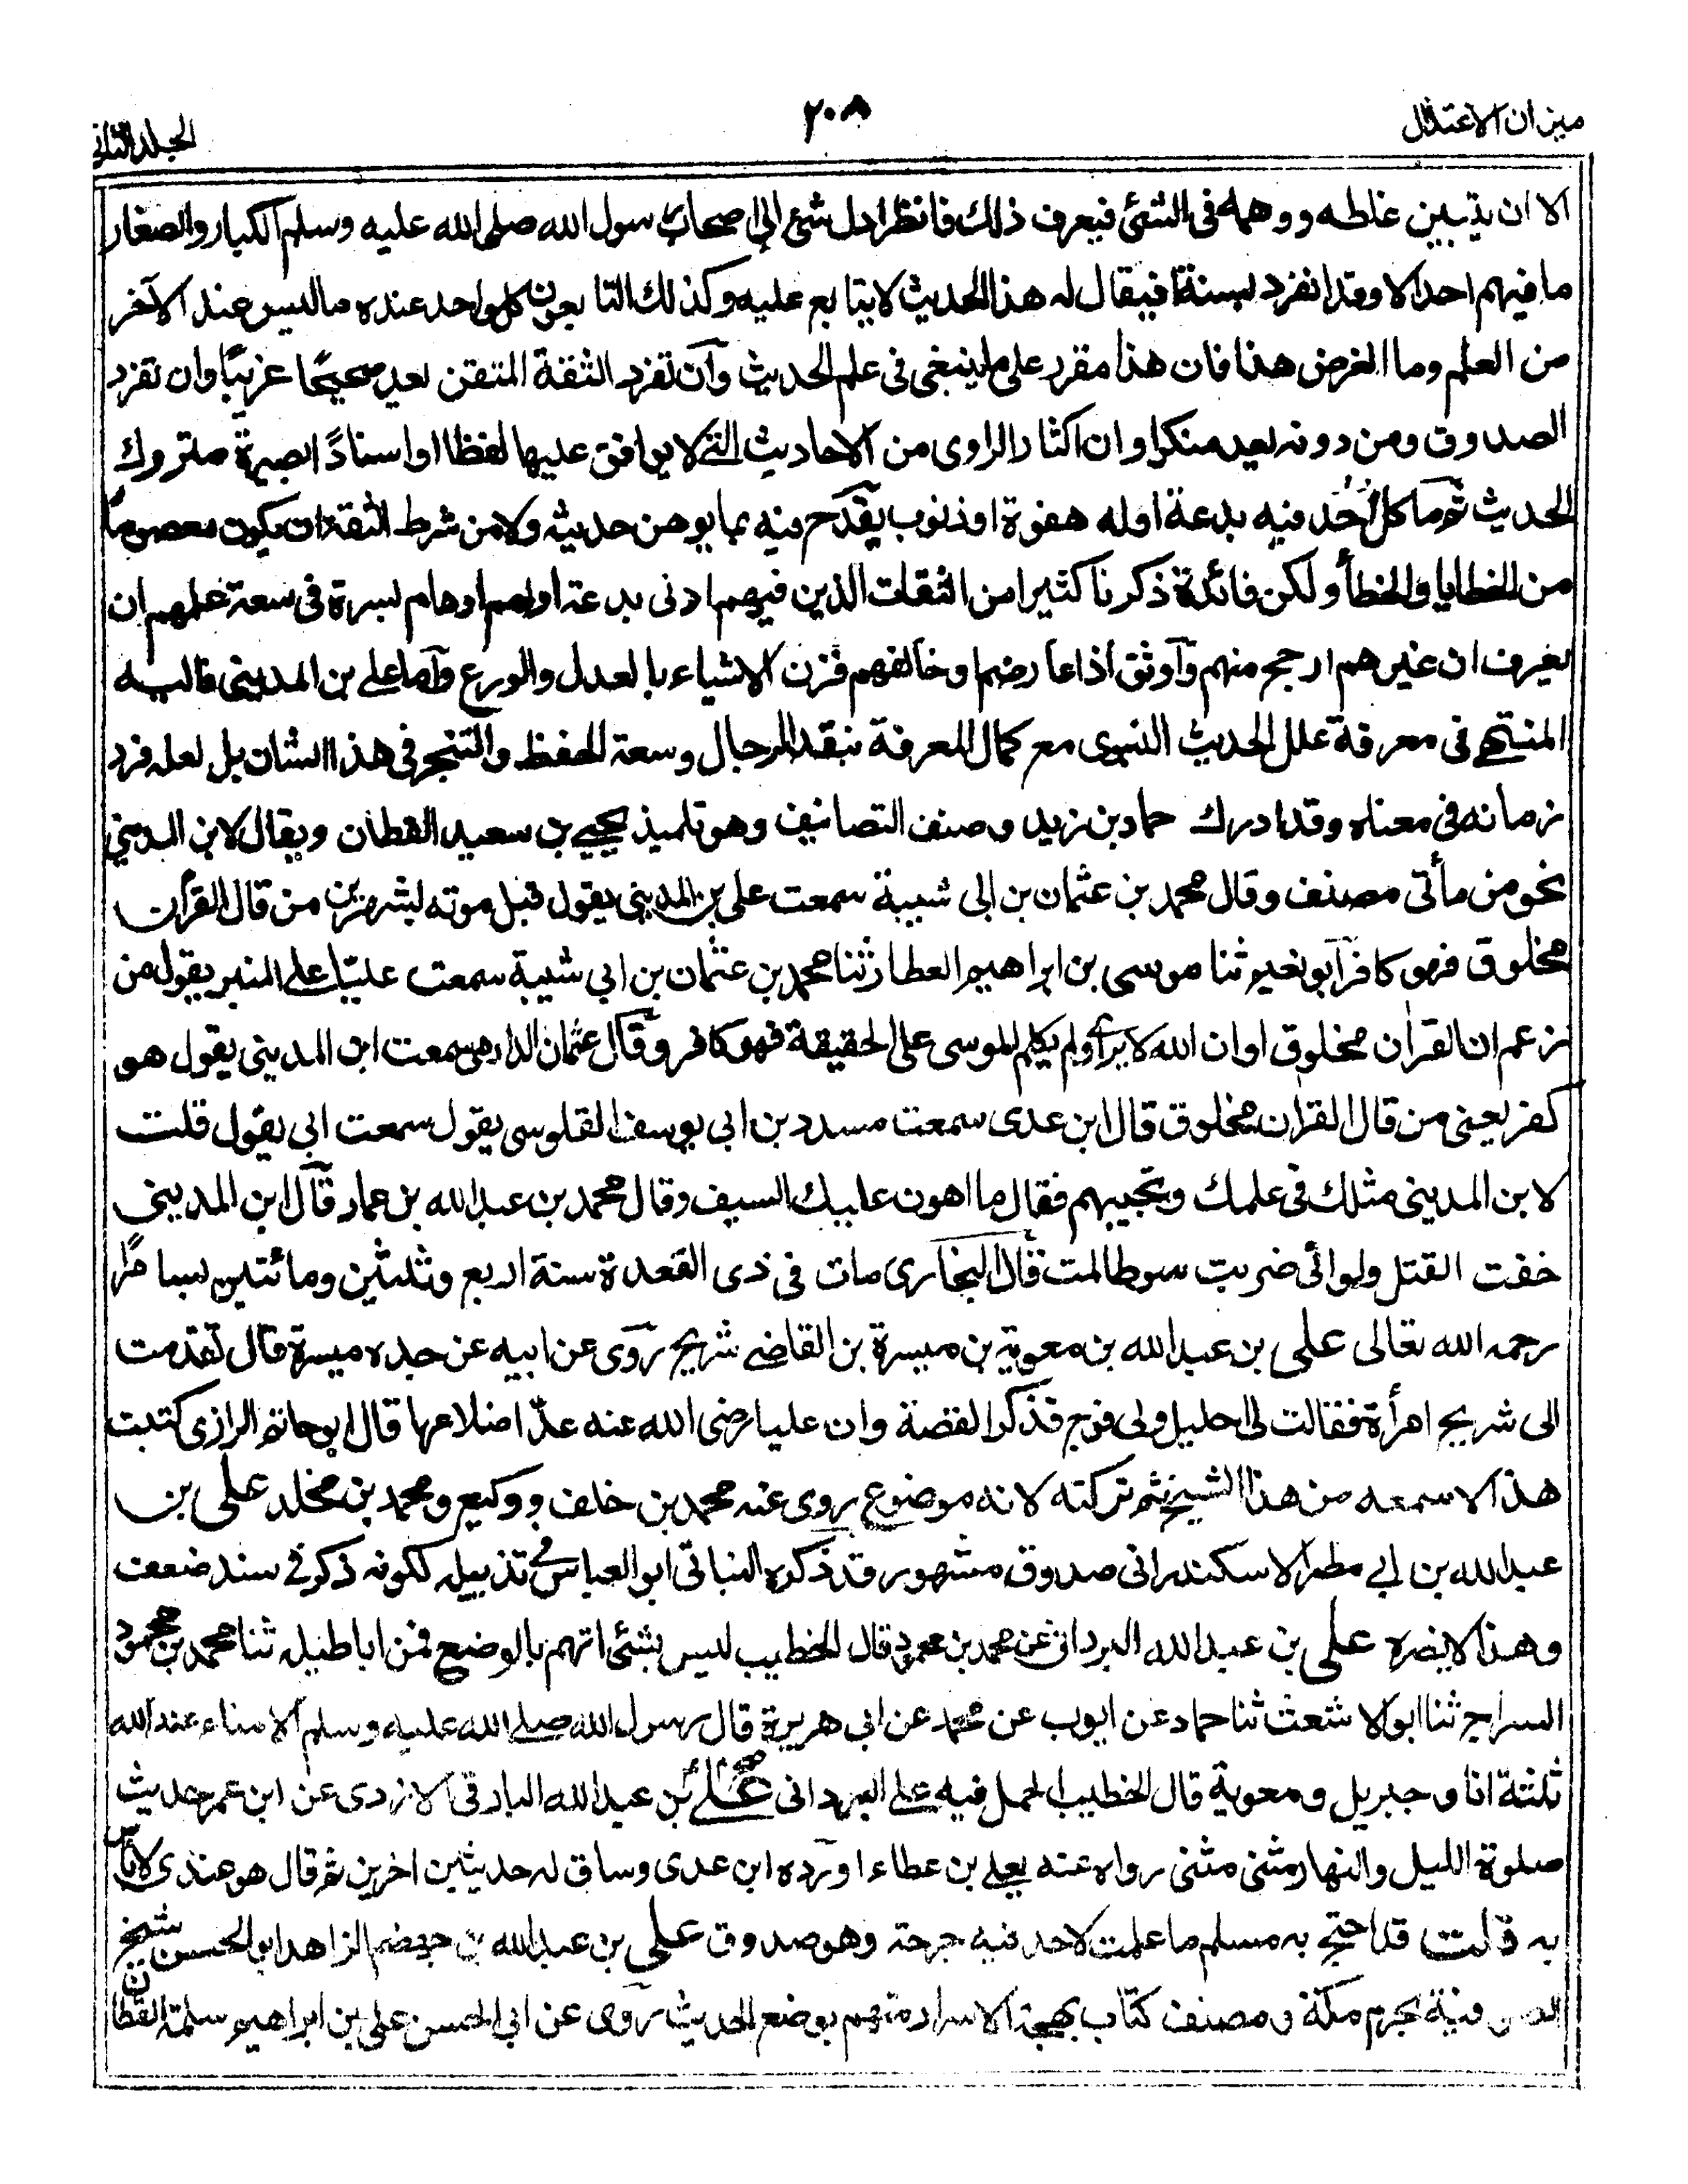 ميزان الاعتدال
٢٠٨
المجلد الثاني
الا ان يتبين غلطه ووهمه فى الشئ فيعرف ذلك فانظر اول شئ الى اصحاب رسول الله صلى الله عليه وسلم الكبار والصغار
ما فيهم احد الا وقد انفرد بسنة افيقال له هذا الحديث لا يتابع عليه وكذلك التابعون كل واحد عنده ما ليس عند الآخر
من العلم وما الغرض هذا فان هذا مقرر على ما ينبغى فى علم الحديث وآن تفرد الثقة المتقن يعد صحيحًا غريبًا وان تفرد
الصدوق ومن دونه يعد منكرا وان اكثار الراوى من الاحاديث التى لا يوافق عليها لفظا او اسنادًا يصيره متروك
الحديث ثم ما كل احد فيه بدعة او له هفوة او ذنوب يقدح فيه بما يوهن حديثه ولا من شرط الثقة ان يكون معصوما
من الخطايا والخطأ ولكن فائدة ذكرنا كثيرا من الثقات الذين فيهم ادنى بدعة او لهم اوهام يسرة فى سعة علمهم ان
يعرف ان غيرهم ارجح منهم وآوثق اذا عارضهم وخالفهم فزن الاشياء بالعدل والورع وآما على بن المدينى فاليه
المنتهى فى معرفة علل الحديث النبوى مع كمال المعرفة بنقد الرجال وسعة الحفظ والتبحر فى هذا الشان بل لعله فرد
زمانه فى معناه وقد ادرك حماد بن زيد وصنف التصانيف وهو تلميذ يحيى بن سعيد القطان ويقال لابن المدينى
نحو من مأتى مصنف وقال محمد بن عثمان بن ابى شيبة سمعت على بن المدينى يقول قبل موته بشهرين من قال القرآن
مخلوق فهو كافر آبو نعيم ثنا موسى بن ابراهيم العطار ثنا محمد بن عثمان بن ابي شيبة سمعت عليّا على المنبر يقول من
زعم ان القرآن مخلوق او ان الله لا يرى او لم يكلم موسى على الحقيقة فهو كافر وقال عثمان الدارمى سمعت ابن المدينى يقول هو
كفر يعنى من قال القرآن مخلوق قال ابن عدى سمعت مسدد بن ابى يوسف القلوسى يقول سمعت ابى يقول قلت
لابن المدينى مثلك فى علمك وتجيبهم فقال ما اهون عليك السيف وقال محمد بن عبد الله بن عمار قال ابن المدينى
خفت القتل ولو انى ضربت سوطا لمت قال البخارى مات فى ذى القعدة سنة اربع وثلثين ومائتين بسامرًا
رحمه الله تعالى على بن عبد الله بن معوية بن ميسرة بن القاضى شريح روى عن ابيه عن جده ميسرة قال تقدمت
الى شريح امرأة فقالت لى احليل ولى فرج فذكر القصة وان عليا رضى الله عنه عدّ اضلاعها قال ابو حاتم الرازى كتبت
هذا لا سمعه من هذا الشيخ ثم تركته لانه موضوع روى عنه محمد بن خلف ووكيع ومحمد بن مخلد على بن
عبد الله بن ابى مطر الاسكندرانى صدوق مشهور قد ذكره النباتى ابو العباس فى تذييله لكونه ذكر فى سند ضعف
وهذا لا يضره على بن عبد الله البردانى عن محمد بن محمود قال الخطيب ليس بشئ اتهم بالوضع فمن اباطيله ثنا محمد بن محمود
السراج ثنا ابو الاشعث ثنا حماد عن ايوب عن محمد عن ابى هريرة قال رسول الله صلى الله عليه وسلم الامناء عند الله
ثلثة انا وجبريل ومعوية قال الخطيب الحمل فيه على البردانى على بن عبد الله البارقى الازدى عن ابن عمر حديث
صلوة الليل والنهار مثنى مثنى رواه عنه يعلى بن عطاء اورده ابن عدى وساق له حديثين اخرين ثم قال هو عندى لا باس
به قلت قد احتج به مسلم ما علمت لاحد فيه جرحة وهو صدوق على بن عبد الله بن جهضم الزاهد ابو الحسن شيخ
الصوفية بحرم مكة ومصنف كتاب بهجة الاسرار متهم بوضع الحديث روى عن ابى الحسن على بن ابراهيم سلمة القطان